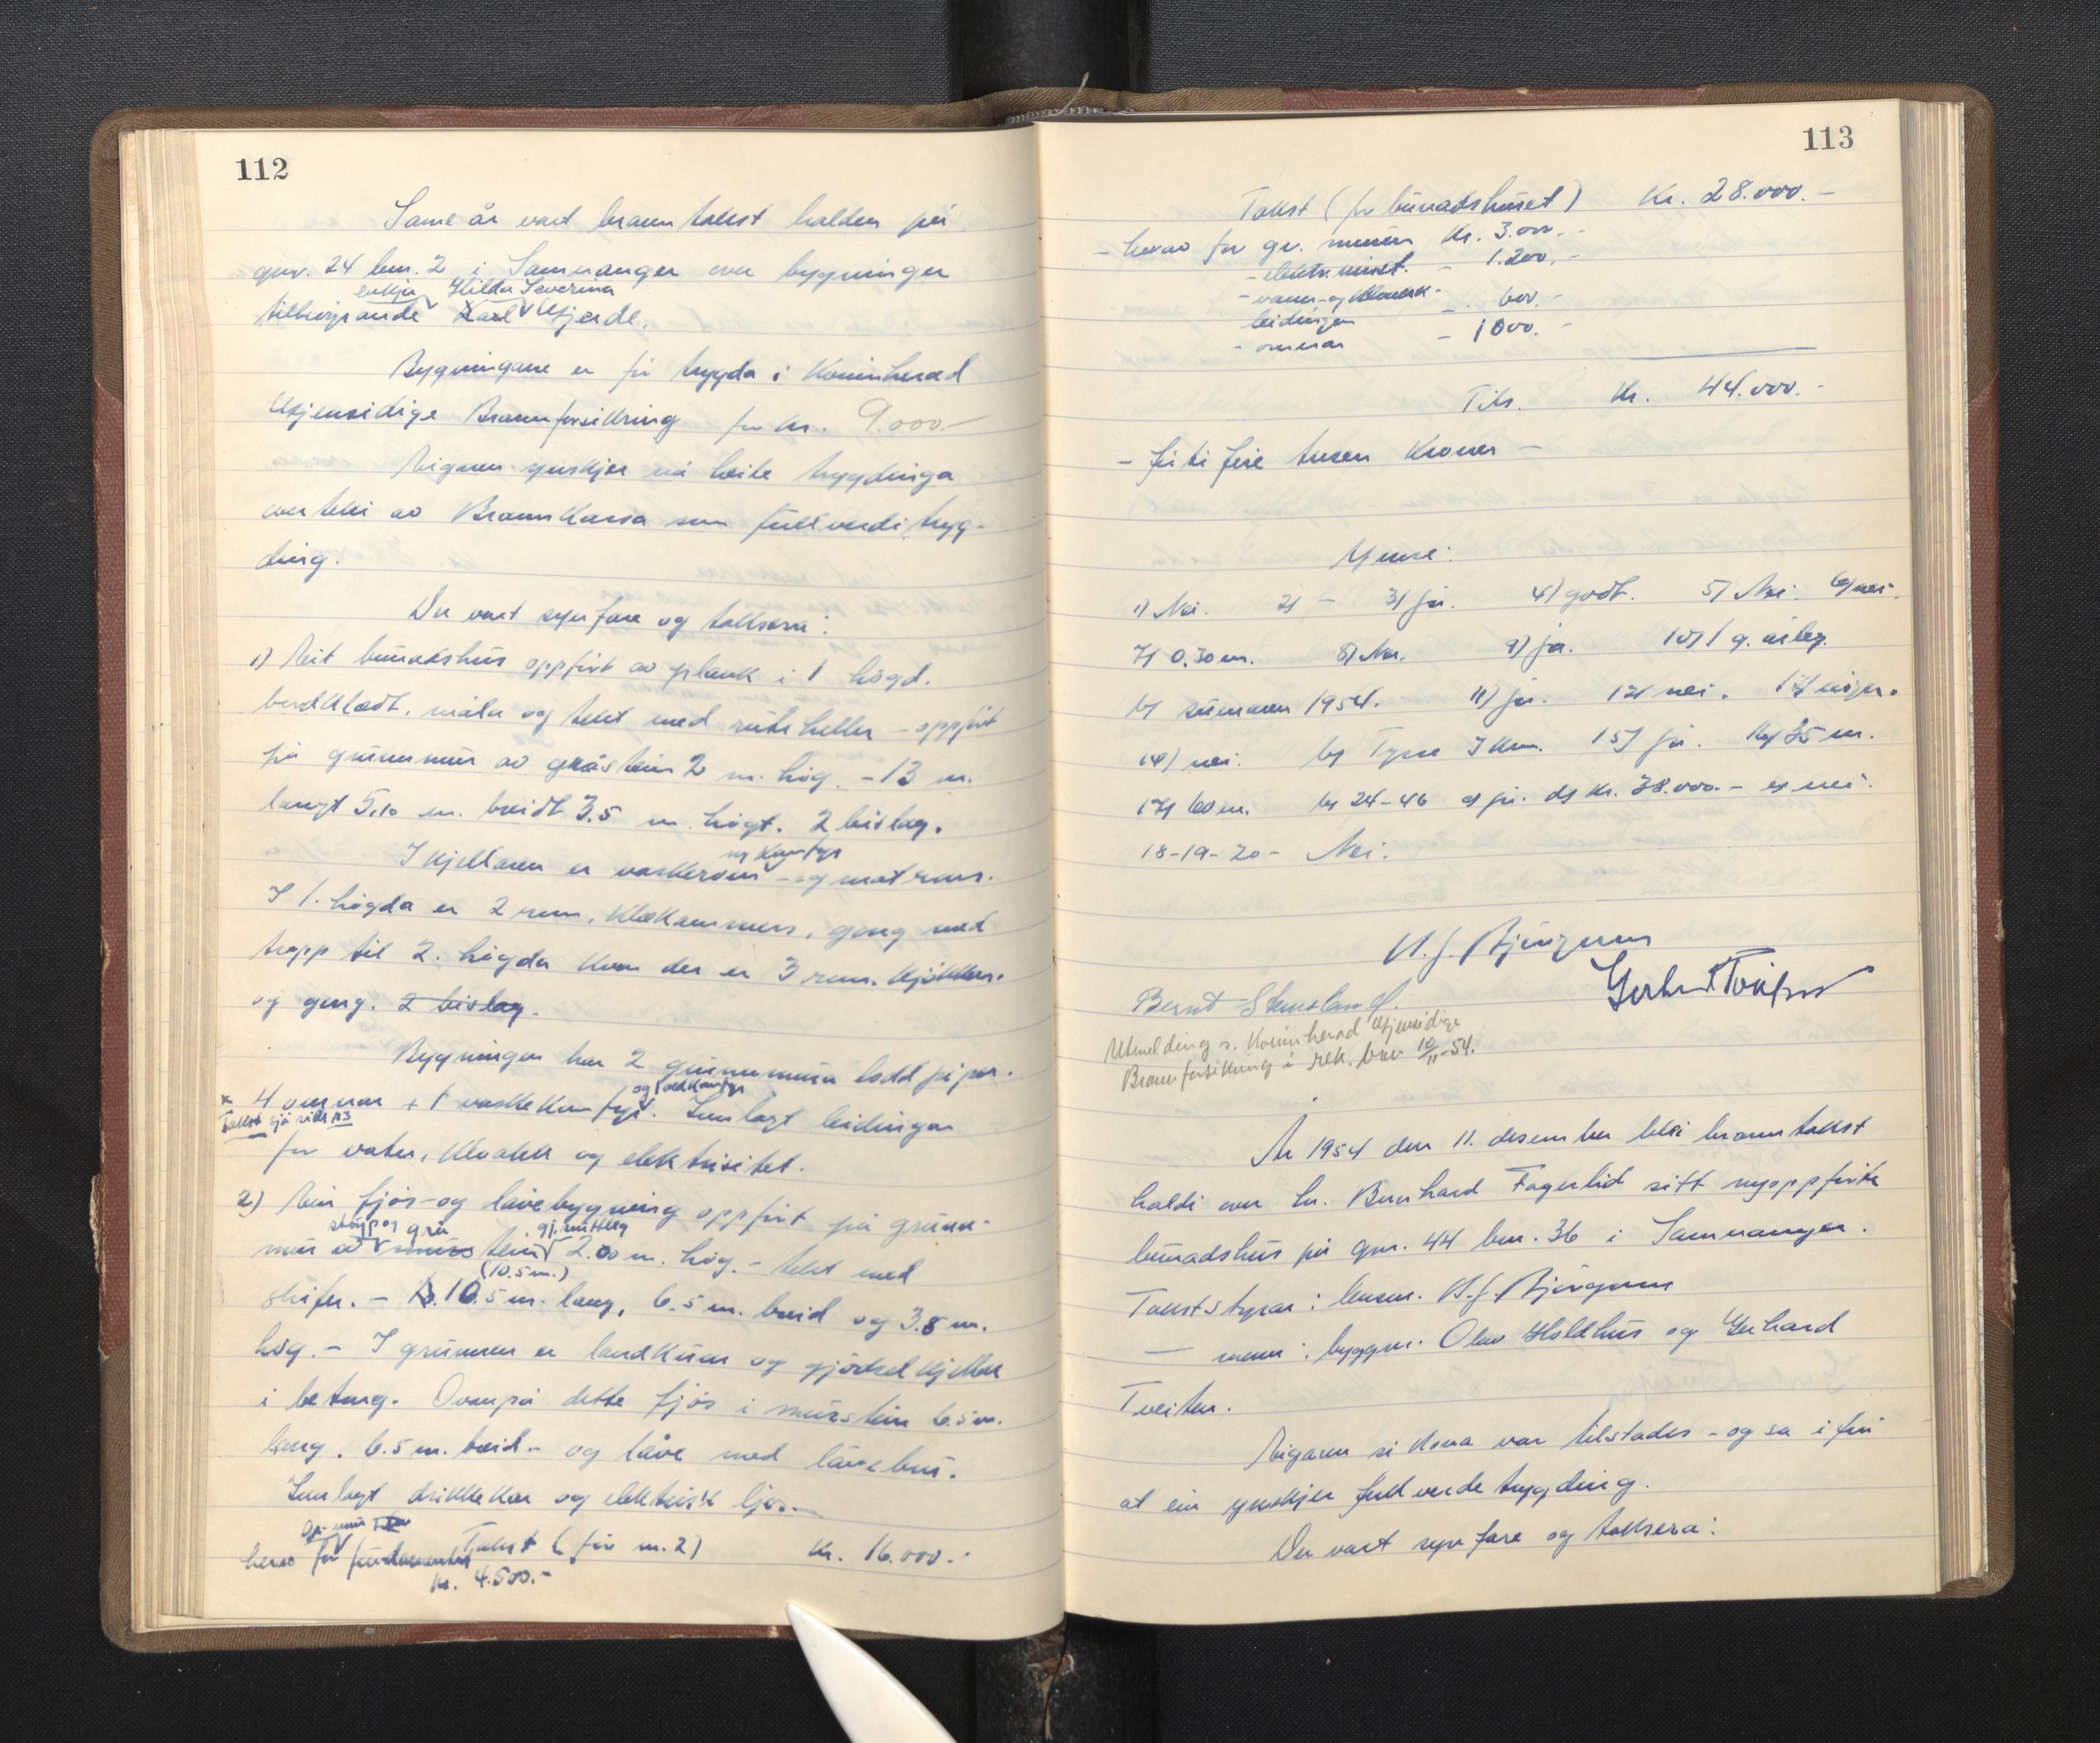 112
Same år vart branntakst halden på
gnr. 24 bnr. 2 i Samnanger over bygningar
enkja Hilda Severina
tilhøyrande Karl Gjerde.
Bygningane er før trygda i Kvinnherad
Gjensidige Brannforsikring for kr. 9.000.-
Eigaren ynskjer nå heile trygdinga
overteki av Brannkassa som fullverditryg-
ding.
Der vart synfare og taksera:
1) Eit bunadshus oppført av plank i 1 høgd.
bordklædt, måla og tekt med ruteheller - oppført
på grunnmur av gråstein 2 m. høg. - 13 m.
langt 5,10 m. breidt 3.5 m. høgt. 2 bislag.
og komfyr
I kjellaren er vaskerom - og matrom.
I 1. høgda er 2 rom, klekammers, gong med
trapp til 2. høgda kvar der er 3 rom, kjøkken.
og gong. 2 bislag.
Bygningen har 2 grunnmura loddpiper.
og vedkomfyr
* 4 omnar + 1 vaskekomfyr. Innlagt leidningar
Takst sjå side 113
for vatn, kloakk og elektrisitet.
2) Ein fjøs- og løebygning oppført på grunn-
støyp og grå gj.snittleg
mur av murs tein 2.00 m. høg. - tekt med
(10.5 m.)
skifer. - 10.5 m. lang, 6.5 m. breid og 3.8 m.
høg. - I grunnen er landkum og gjødselkjellar
i betong. Ovanpå dette fjøs i murstein 6.5 m.
lang. 6.5 m. breid - og låve med låvebru.
Innlagt drikkekar og elektrisk ljos.
gr. mur
Takst (for nr. 2) kr. 16.000.-
herav for fundamenter
kr. 4.500.-
113
Takst (for bunadshuset) Kr. 28.000.-
- herav for gr. muren Kr. 3.000.-
- elektr. - 1.200.-
- vann- og kloakk-
leidningar - 600.-
- omnar - 1000.-
Tils. Kr. 44.000.-
- førti fire tusen kroner -
Ymse:
1) Nei. 2) - 3) ja. 4) godt. 5) Nei. 6) nei.
7) 0.30 m. 8) Nei. 9) ja. 10) 1 g. årleg.
b) sumaren 1954. 11) ja. 12) nei. 13) ingen.
14) nei. b) Tysse 3 km. 15) ja. 16) 35 m.
17) 60 m. b) 24-46 c) ja. d) kr. 38.000.- e) nei.
18-19-20- Nei.
Bernt
Utmelding s. Kvinnherad Gjensidige
Brannforsikring i rek. brev 10/11-54.
År 1954 den 11. desember blei branntakst
haldi over hr. Bernhard Fagerlid sitt nyoppførte
bunadshus på gnr. 44 bnr. 36 i Samnanger.
Takststyrar: lensm.
- menn: byggm. Olav Holdhus og Gerhard
Tveiten.
Eigaren si kona var tilstades - og sa i frå
at ein ynskjer fullverde trygding.
Der vart synfare og taksera: